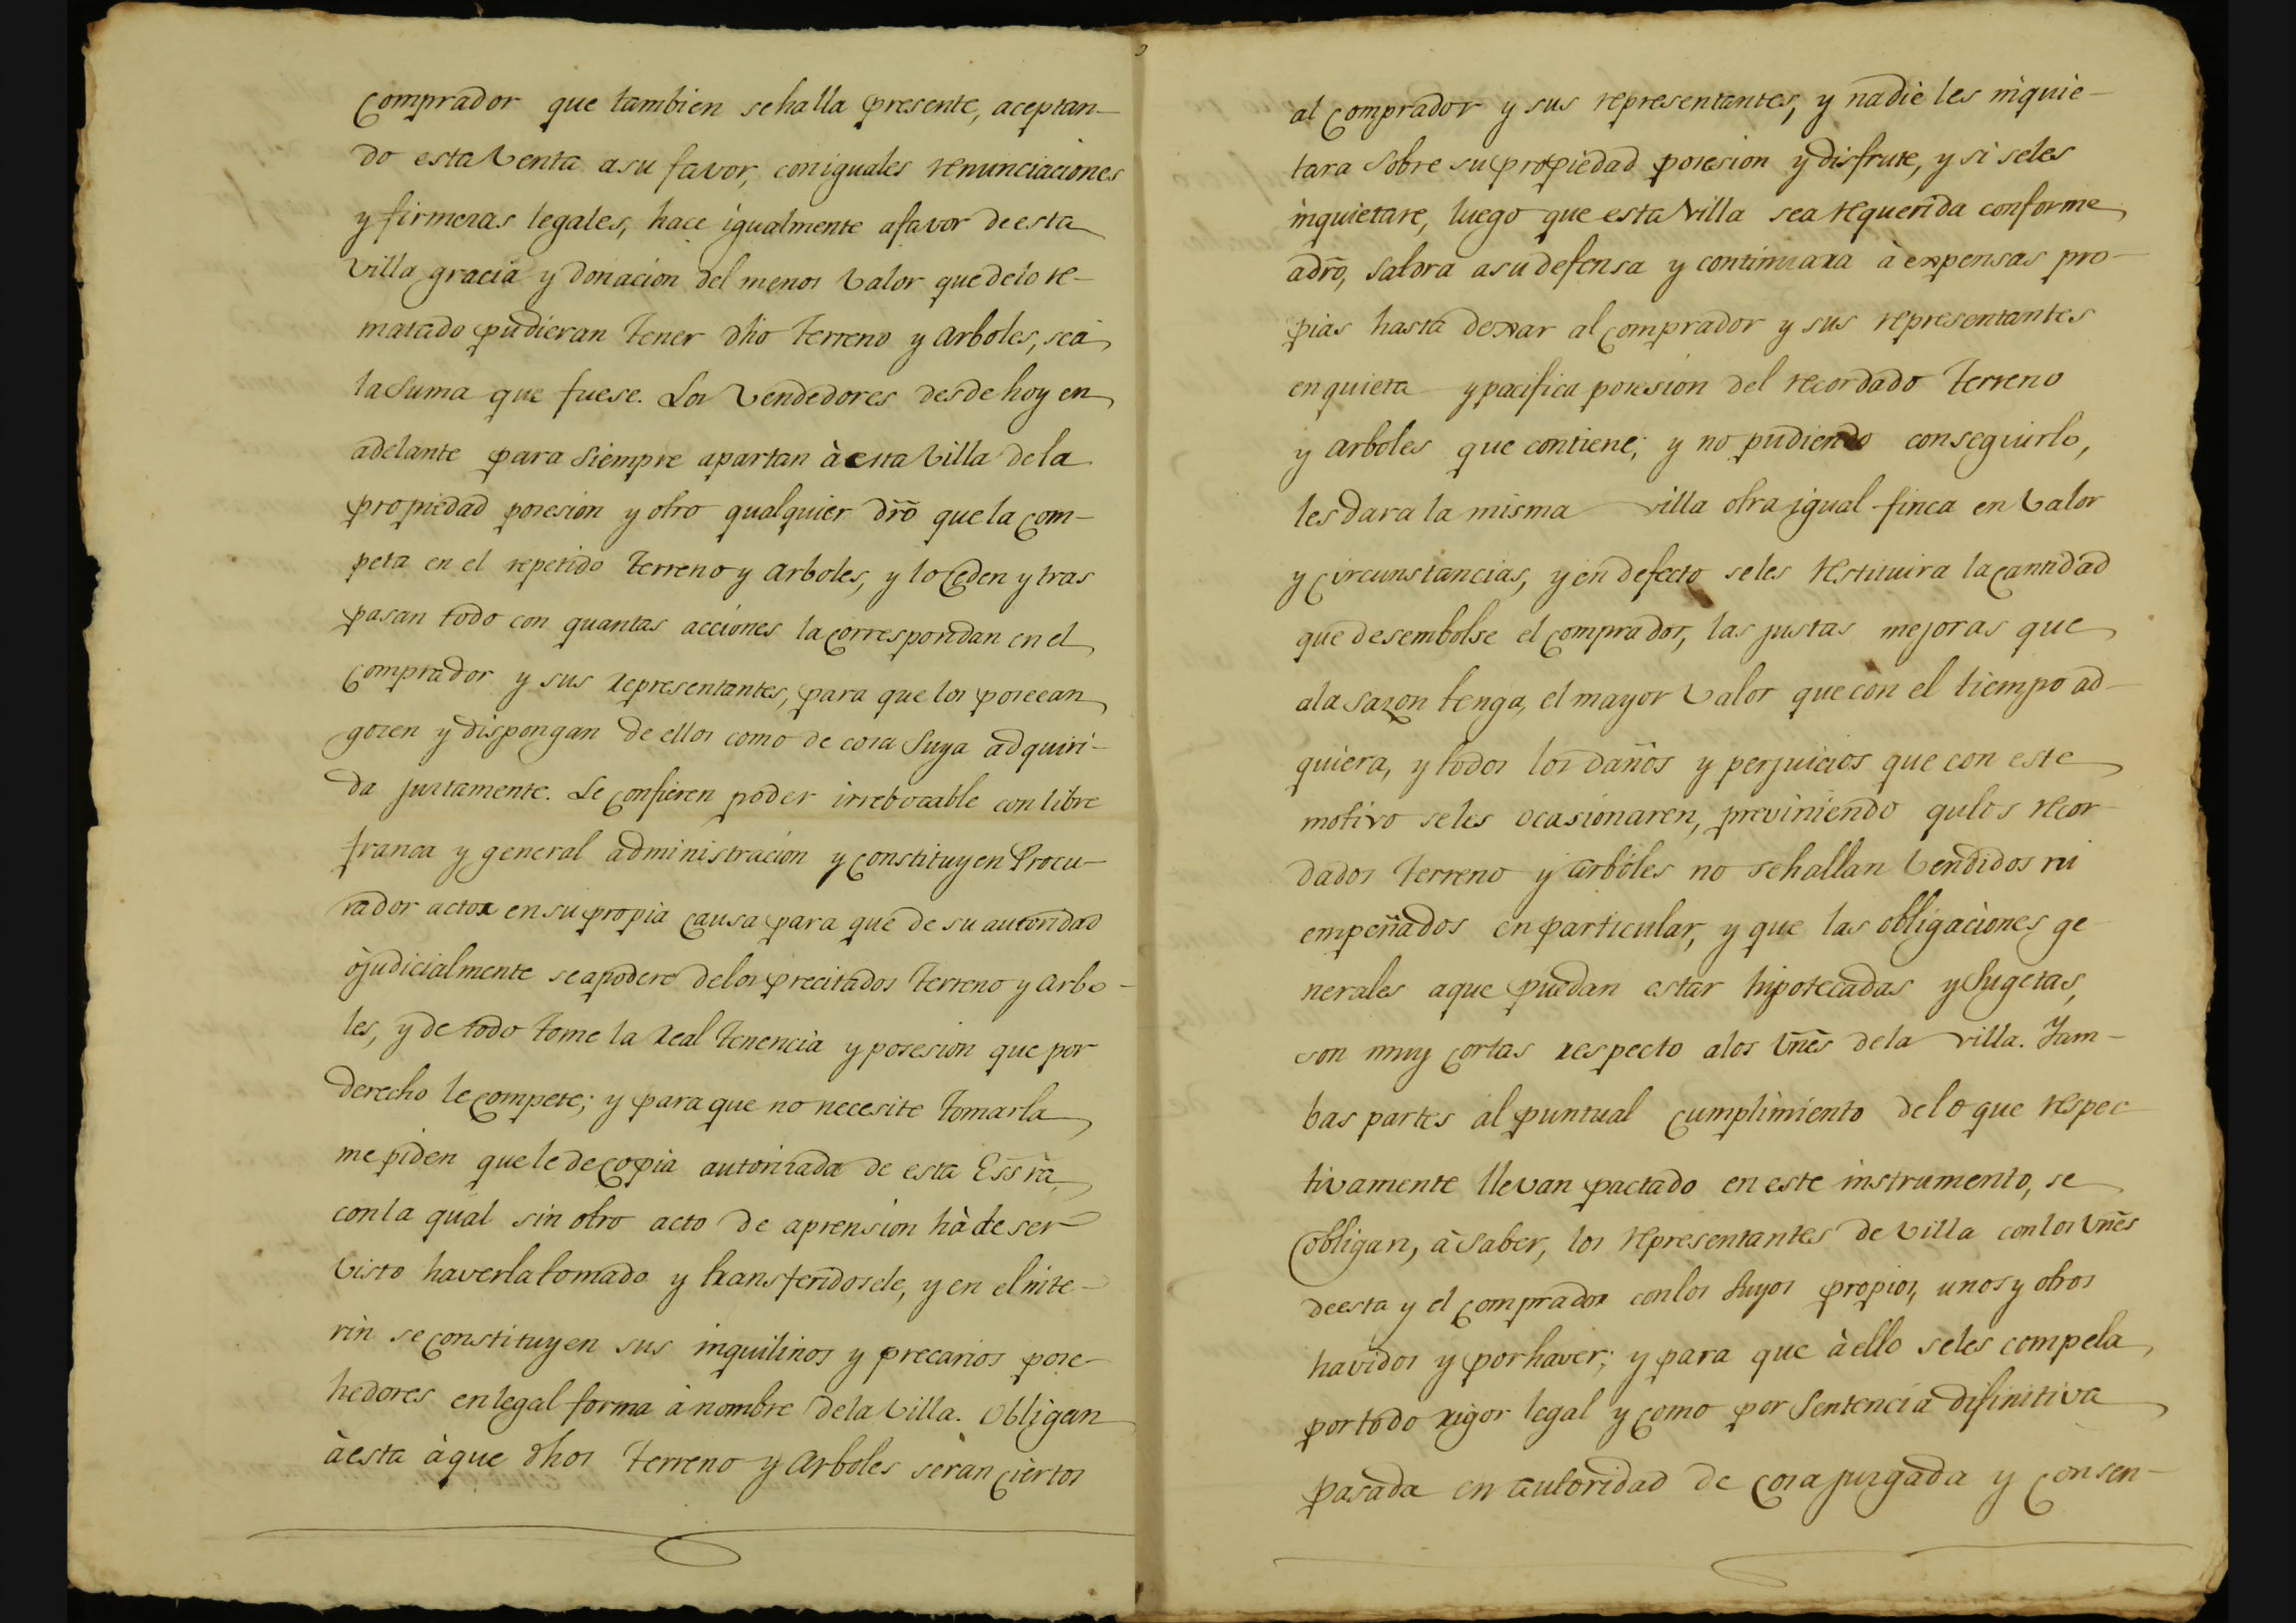 Comprador que tambien sehalla presente, aceptan-
do esta Venta asu favor, coniguales renunciaciones
y firmezas legales, hace igualmente afavor deesta
Villa gracia y donacion del menos Valor que delo re-
matado pudieran tener dho terreno y arboles, sea
la Suma que fuese. Los Vendedores desde hoy en
adelante para Siempre apartan à esta Villa dela
propiedad posesion y otro qualquier dr̃o que la com-
peta en el repetido terreno y arboles, y lo Ceden y tras
pasan todo con quantas acciones la correspondan en el
Comprador y sus representantes, para que los poseean
gozen y dispongan de ellos como de cosa Suya adquiri-
da justamente. Le Confieren poder irrebocable con libre
franca y general administracion y constituyen Procu-
rador actor en su propia Causa para que de su autoridad
òjudicialmente seapodere delos precitados terreno y arbo-
les, y de todo tome la Real tenencia y posesion que por
derecho le Compete; y para que no necesite tomarla
me piden que le de Copia autorizada de esta Ess.ra
conla qual sin otro acto de aprension hà de ser
visto haverla tomado y transferidosele, y en el inte-
rin se Constituyen sus inquilinos y precarios pose-
hedores enlegal forma ànombre dela Villa. Obligan
àesta àque dhos terreno y Arboles seràn Ciertos
al Comprador y sus representantes, y nadie les inquie-
tara Sobre su propiedad posesion y disfrute, y si seles
inquietare, luego que esta Villa sea requerida conforme
adr̃o, Saldra asu defensa y continuara à expensas pro-
pias hasta dexar al Comprador y sus representantes
en quieta y pacifica posesion del recordado terreno
y arboles que contiene; y no pudiendo conseguirlo,
les dara la misma villa otra igual finca en Valor
y Circunstancias, y en defecto seles restituira la Cantidad
que desembolse el Comprador, las justas mejoras que
ala Sazon tenga, el mayor Valor que con el tiempo ad-
quiera, y todos los daños y perjuicios que con este
motivo seles ocasionaren, previniendo qu los recor-
dados terreno y arboles no sehallan Vendidos ni
empeñados en particular, y que las obligaciones ge-
nerales aque puedan estar hipotecadas y Sugetas,
son muy Cortas respecto alos Vñes dela villa. Yam-
bas partes al puntual Cumplimiento delo que respec
tivamente llevan pactado en este instrumento, se
obligan, à Saber, los representantes de Villa conlos Vñes
deesta y el Comprador conlos Suyos propios, unos y otros
havidos y por haver; y para que àello seles compela
por todo rigor legal y Como por Sentencia difinitiva
pasada en autoridad de Cosa juzgada y Consen-